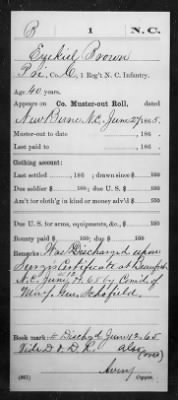 B 1 N.C.
Ezekiel Brown
Pvt., Co. C, 1 Reg't N. C. Infantry.
Age 40 years.
Appears on Co. Muster-out Roll, dated
New Berne, N.C. June 27, 1865.
Muster-out to date , 186 .
Last paid to , 186 .
Clothing account:
Last settled , 186 ; drawn since $ 100
Due soldier $ 100; due U. S. $ 100
Am't for cloth'g in kind or money adv'd $ 100
Due U. S. for arms, equipments, &c., $ 100
Bounty paid $ 100; due $ 100
Remarks: Was Discharged upon
Surg's Certificate at Beaufort
N.C. June 12 65 by Comd. of
Maj. Gen. Schofield.
Book mark: Dischgd June 12, 65
Vide D
also
(over)
Avery
(861) Copyist.